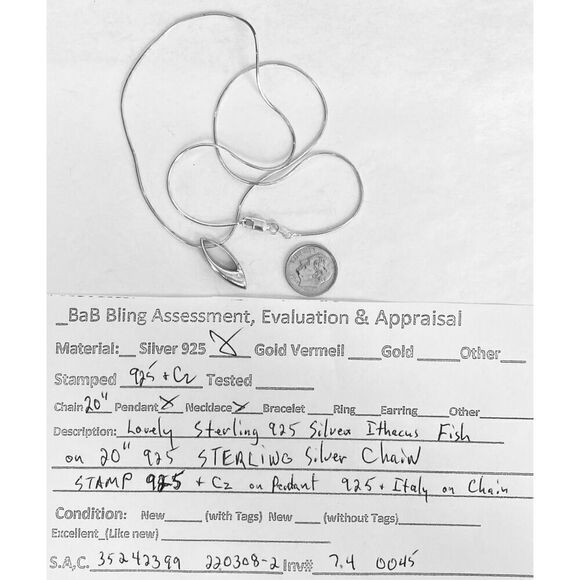 _BaB Bling Assessment, Evaluation & Appraisal
Material:__ Silver 925 X Gold Vermeil ___ Gold ____Other____
Stamped 925 + Cz Tested _____
Chain 20" Pendant X Necklace X Bracelet ___Ring___Earring___Other____
Description: Lovely Sterling 925 Silver Ithacus Fish
on 20" 925 STERLING Silver Chain
STAMP 925 + Cz on Pendant 925 + Italy on Chain
Condition: New____ (with Tags) New ____ (without Tags)____
Excellent_(Like new)____
S.A,C. 35242399 220308-2 Inv# 7.4 0045